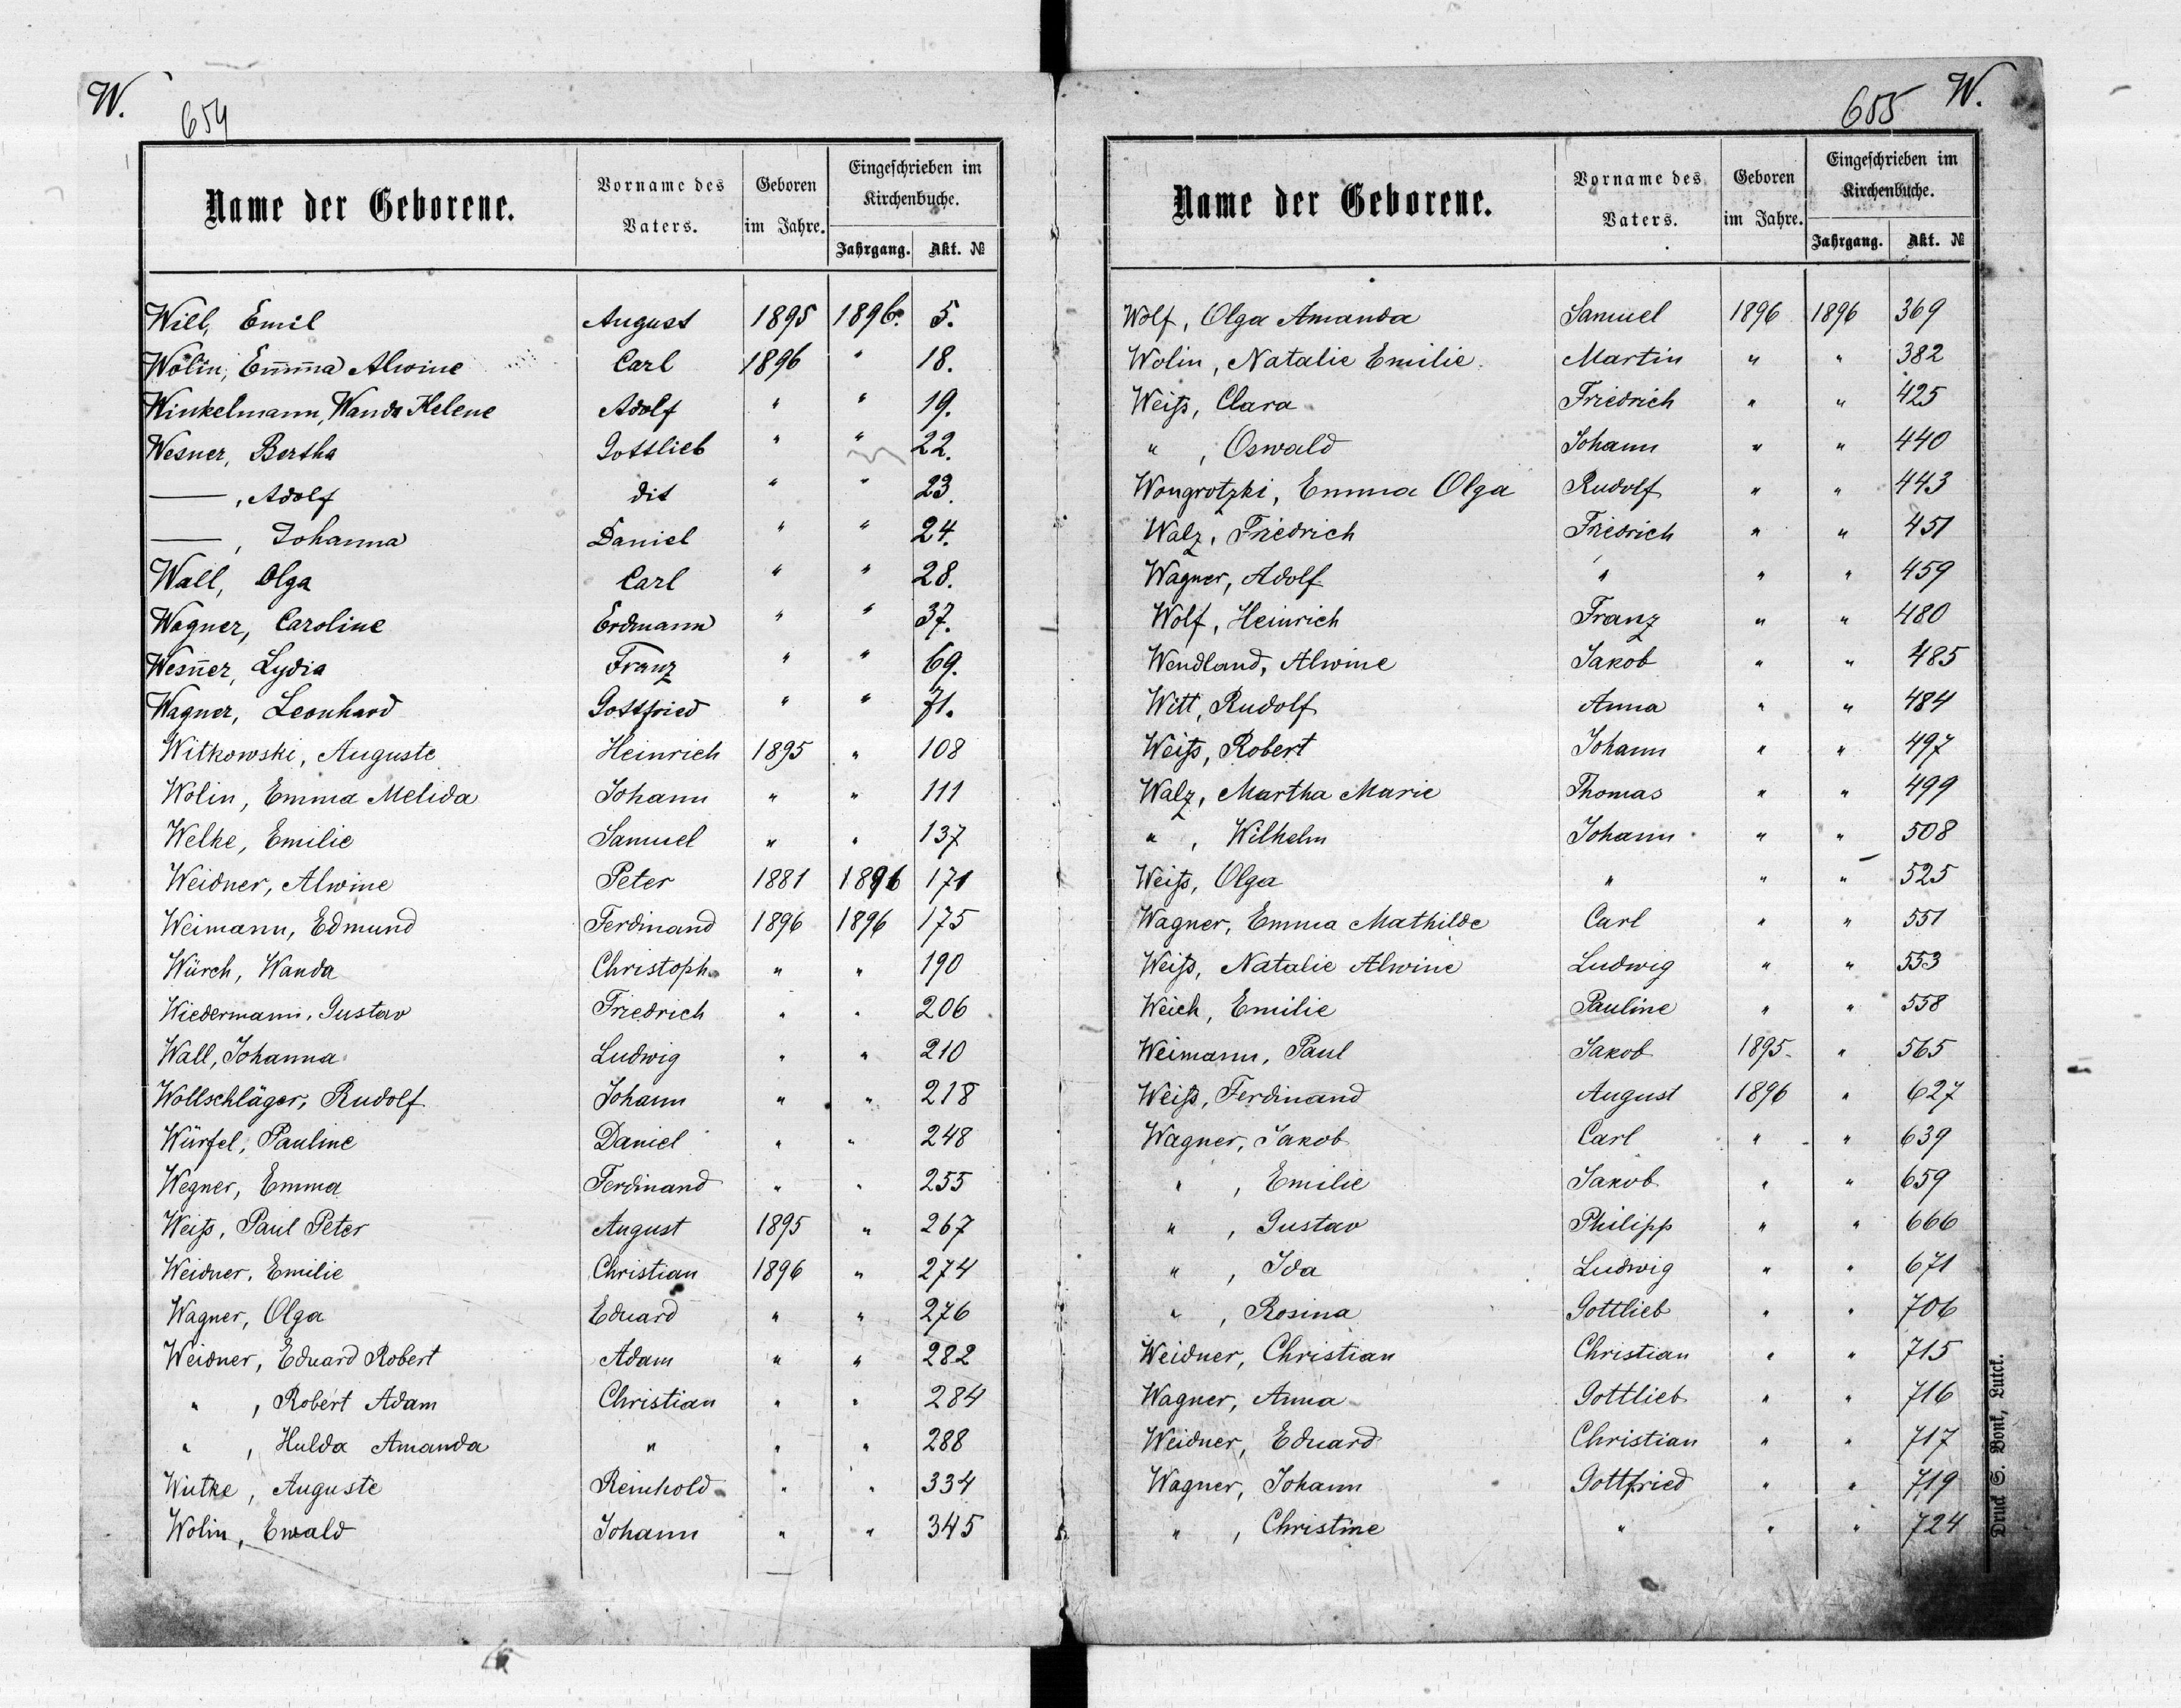 W.
654
Name der Geborene. Vorname des Vaters. Geboren im Jahre. Eingeschrieben im Kirchenbuche. Jahrgang. Akt. №
Will, Emil August 1895 1896. 5.
Wolin, Em̅m̅a Alwine Carl 1896 " 18.
Winkelmann, Wanda Helene Adolf " " 19.
Wesner, Bertha Gottlieb " " 22.
—, Adolf dit " " 23.
—, Johanna Daniel " " 24.
Wall, Olga Carl " " 28.
Wagner, Caroline Erdmann " " 37.
Wesner, Lydia Franz " " 69.
Wagner, Leonhard Gottfried " " 71.
Witkowski, Auguste Heinrich 1895 " 108
Wolin, Emma Melida Johann " " 111
Welke, Emilie Samuel " " 137
Weidner, Alwine Peter 1881 1896 171
Weimann, Edmund Ferdinand 1896 1896 175
Würch, Wanda Christoph " " 190
Wiedermann, Gustav Friedrich " " 206
Wall, Johanna Ludwig " " 210
Wollschläger, Rudolf Johann " " 218
Würfel, Pauline Daniel " " 248
Wegner, Emma Ferdinand " " 255
Weiß, Paul Peter August 1895 " 267
Weidner, Emilie Christian 1896 " 274
Wagner, Olga Eduard " " 276
Weidner, Eduard Robert Adam " " 282
" , Robert Adam Christian " " 284
" , Hulda Amanda " " " 288
Wutke, Auguste Reinhold " " 334
Wolin, Ewald Johann " " 345
655 W.
Name der Geborene. Vorname des Vaters. Geboren im Jahre. Eingeschrieben im Kirchenbuche. Jahrgang. Akt. №
Wolf, Olga Amanda Samuel 1896 1896 369
Wolin, Natalie Emilie Martin " " 382
Weiß, Clara Friedrich " " 425
" , Oswald Johann " " 440
Wongrotzki, Emma Olga Rudolf " " 443
Walz, Friedrich Friedrich " " 451
Wagner, Adolf " " " 459
Wolf, Heinrich Franz " " 480
Wendland, Alwine Jakob " " 485
Witt, Rudolf Anna " " 484
Weiß, Robert Johann " " 497
Walz, Martha Marie Thomas " " 499
" , Wilhelm Johann " " 508
Weiß, Olga " " " 525
Wagner, Emma Mathilde Carl " " 551
Weiß, Natalie Alwine Ludwig " " 553
Weich, Emilie Pauline " " 558
Weimann, Paul Jakob 1895 " 565
Weiß, Ferdinand August 1896 " 627
Wagner, Jakob Carl " " 639
" , Emilie Jakob " " 659
" , Gustav Philipp " " 666
" , Ida Ludwig " " 671
" , Rosina Gottlieb " " 706
Weidner, Christian Christian " " 715
Wagner, Anna Gottlieb " " 716
Weidner, Eduard Christian " " 717
Wagner, Johann Gottfried " " 719
" , Christine " " " 724
Druck S. Bont, Luck.